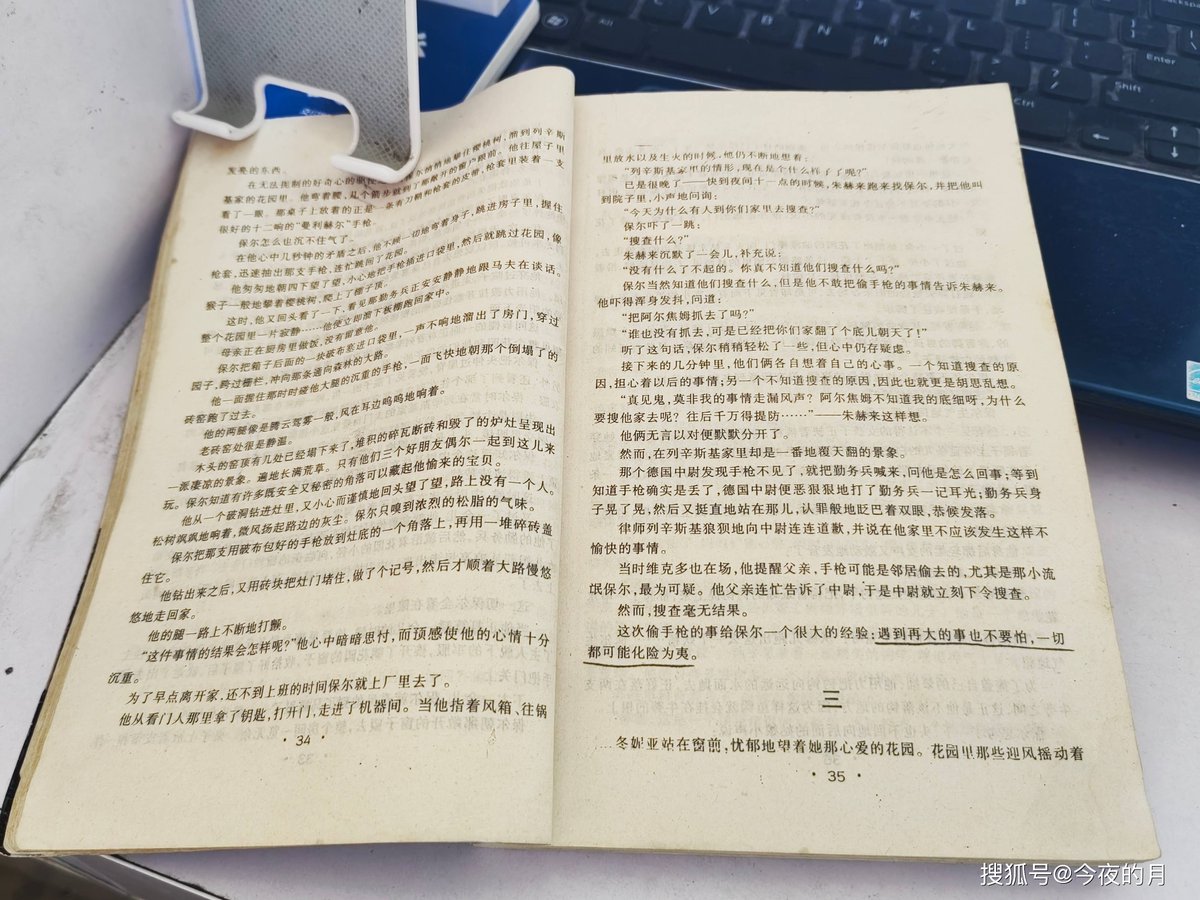 发亮的东西。
在无法抵制的好奇心的驱使 悄悄地攀住樱桃树,溜到列辛斯
基家的花园里。他弯着腰,几个箭步就到了那敞开的窗户跟前。他往屋子里
看了一眼。那桌子上放着的正是一条有刀鞘和枪套的皮带,枪套里装着一支
很好的十二响的“曼利赫尔”手枪。
保尔怎么也沉不住气了。
在他心中几秒钟的矛盾之后,他不顾一切地弯着身子,跳进房子里,握住
枪套,迅速抽出那支手枪,连忙跳回了花园。
他匆匆地朝四下望了望,小心地把手枪插进口袋里,然后就跳过花园,像
猴子一般地攀着樱桃树,爬上了棚子顶。
这时,他又回头看了一下、看见那勤务兵正安安静静地跟马夫在谈话。
整个花园里一片寂静……他便立即溜下板棚跑回家中。
母亲正在厨房里做饭,没有留意他。
保尔把箱子后面的一块破布塞进口袋里,一声不响地溜出了房门,穿过
园子,跨过栅栏,冲向那条通向森林的大路。
他一面握住那时时碰他大腿的沉重的手枪,一面飞快地朝那个倒塌了的
砖窑跑了过去。
他的两腿像是腾云驾雾一般,风在耳边呜呜地响着。
老砖窑处很是静谧。
木头的窑顶有几处已经塌下来了,堆积的碎瓦断砖和毁了的炉灶呈现出
一派凄凉的景象。遍地长满荒草。只有他们三个好朋友偶尔一起到这儿来
玩。保尔知道有许多既安全又秘密的角落可以藏起他偷来的宝贝。
他从一个破洞钻进灶里,又小心而谨慎地回头望了望,路上没有一个人。
松树飒飒地响着,微风扬起路边的灰尘。保尔只嗅到浓烈的松脂的气味。
保尔把那支用破布包好的手枪放到灶底的一个角落上,再用一堆碎砖盖
住它。
他钻出来之后,又用砖块把灶门堵住,做了个记号,然后才顺着大路慢悠
悠地走回家。
他的腿一路上不断地打颤。
“这件事情的结果会怎样呢?”他心中暗暗思忖,而预感使他的心情十分
沉重。
为了早点离开家,还不到上班的时间保尔就上厂里去了。
他从看门人那里拿了钥匙,打开门,走进了机器间。当他指着风箱、往锅
·34·
里放水以及生火的时候,他仍不断地想着:
“列辛斯基家里的情形,现在是个什么样子了呢?”
已是很晚了——快到夜间十一点的时候,朱赫来跑来找保尔,并把他叫
到院子里,小声地问询:
“今天为什么有人到你们家里去搜查?”
保尔吓了一跳:
“搜查什么?”
朱赫来沉默了一会儿,补充说:
“没有什么了不起的。你真不知道他们搜查什么吗?”
保尔当然知道他们搜查什么,但是他不敢把偷手枪的事情告诉朱赫来。
他吓得浑身发抖,问道:
“把阿尔焦姆抓去了吗?”
“谁也没有抓去,可是已经把你们家翻了个底儿朝天了!”
听了这句话,保尔稍稍轻松了一些,但心中仍存疑虑。
接下来的几分钟里,他们俩各自想着自己的心事。一个知道搜查的原
因,担心着以后的事情;另一个不知道搜查的原因,因此也就更是胡思乱想。
“真见鬼,莫非我的事情走漏风声?阿尔焦姆不知道我的底细呀,为什么
要搜他家去呢?往后千万得提防……”——朱赫来这样想。
他俩无言以对便默默分开了。
然而,在列辛斯基家里却是一番地覆天翻的景象。
那个德国中尉发现手枪不见了,就把勤务兵喊来,问他是怎么回事;等到
知道手枪确实是丢了,德国中尉便恶狠狠地打了勤务兵一记耳光;勤务兵身
子晃了晃,然后又挺直地站在那儿,认罪般地眨巴着双眼,恭候发落。
律师列辛斯基狼狈地向中尉连连道歉,并说在他家里不应该发生这样不
愉快的事情。
当时维克多也在场,他提醒父亲,手枪可能是邻居偷去的,尤其是那小流
氓保尔,最为可疑。他父亲连忙告诉了中尉,于是中尉就立刻下令搜查。
然而,搜查毫无结果。
这次偷手枪的事给保尔一个很大的经验:遇到再大的事也不要怕,一切
都可能化险为夷。
三
冬妮亚站在窗前,忧郁地望着她那心爱的花园。花园里那些迎风摇动着
·35·
搜狐号@今夜的月